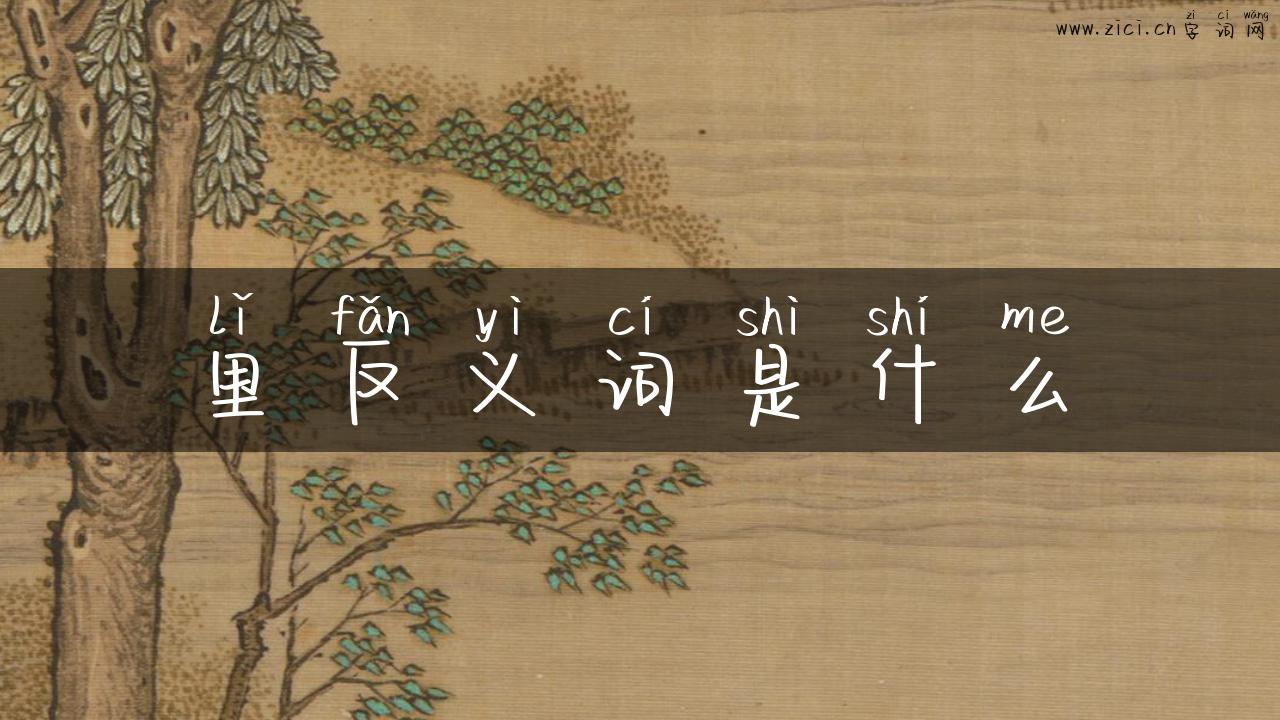 zì cí wǎng
www.zici.cn 字词网
lǐ fǎn yì cí shì shí me
里反义词是什么